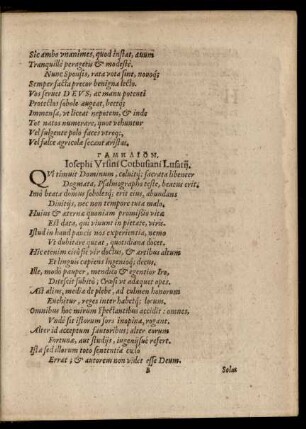 Sic ambo unanimes, quod instat, ævum
Tranquillè peragetis & modestè.
Nunc Sponsis, rata vota sint, novisq;
Semper fausta precor benigna lecto.
Vos servet DEUS, ac manu potenti
Protectos sobole augeat, beetq;
Immensa, ut liceat nepotum, & inde
Tot natos numerare, quot vehuntur
Vel fulgente polo facésvetreq;
Vel falce agricolæ secant aristas.
ΓΑΜΗΛΙΟΝ,
Iosephi Ursini Cotbusiani Lusatij.
QUi timuit Dominum, coluitq; sacrata libenter
Dogmata, Psalmographo teste, beatus erit.
Imò beata domus soboleſq; erit ejus, abundans
Divitijs, nec non tempore tuta malo.
Huius & æterna quoniam promissio vitæ
Est data, qui vivunt in pietate, viris.
Istud in haud paucis nos experientia, nemo
Ut dubitare queat, quotidiana docet.
Hic etenim civis sit vir doctus, & artibus altum
Et linguis capiens Ingenioq; decus.
Ille, modò pauper, mendico & egentior Iro,
Ditescit subitò; Crœsi ut adæquet opes.
Ast alius, media de plebe, ad culmen honorum
Evehitur, reges inter habetq; locum.
Omnibus hoc mirum spectantibus accidit: omnes
Unde sit istorum sors inopina, rogant.
Alter id acceptum fautoribus; alter earum
Fortunæ, aut studijs, ingenijsuè refert.
Ista sed illorum toto sententia cælo
Errat; & autorem non videt esse Deum.
B Solus